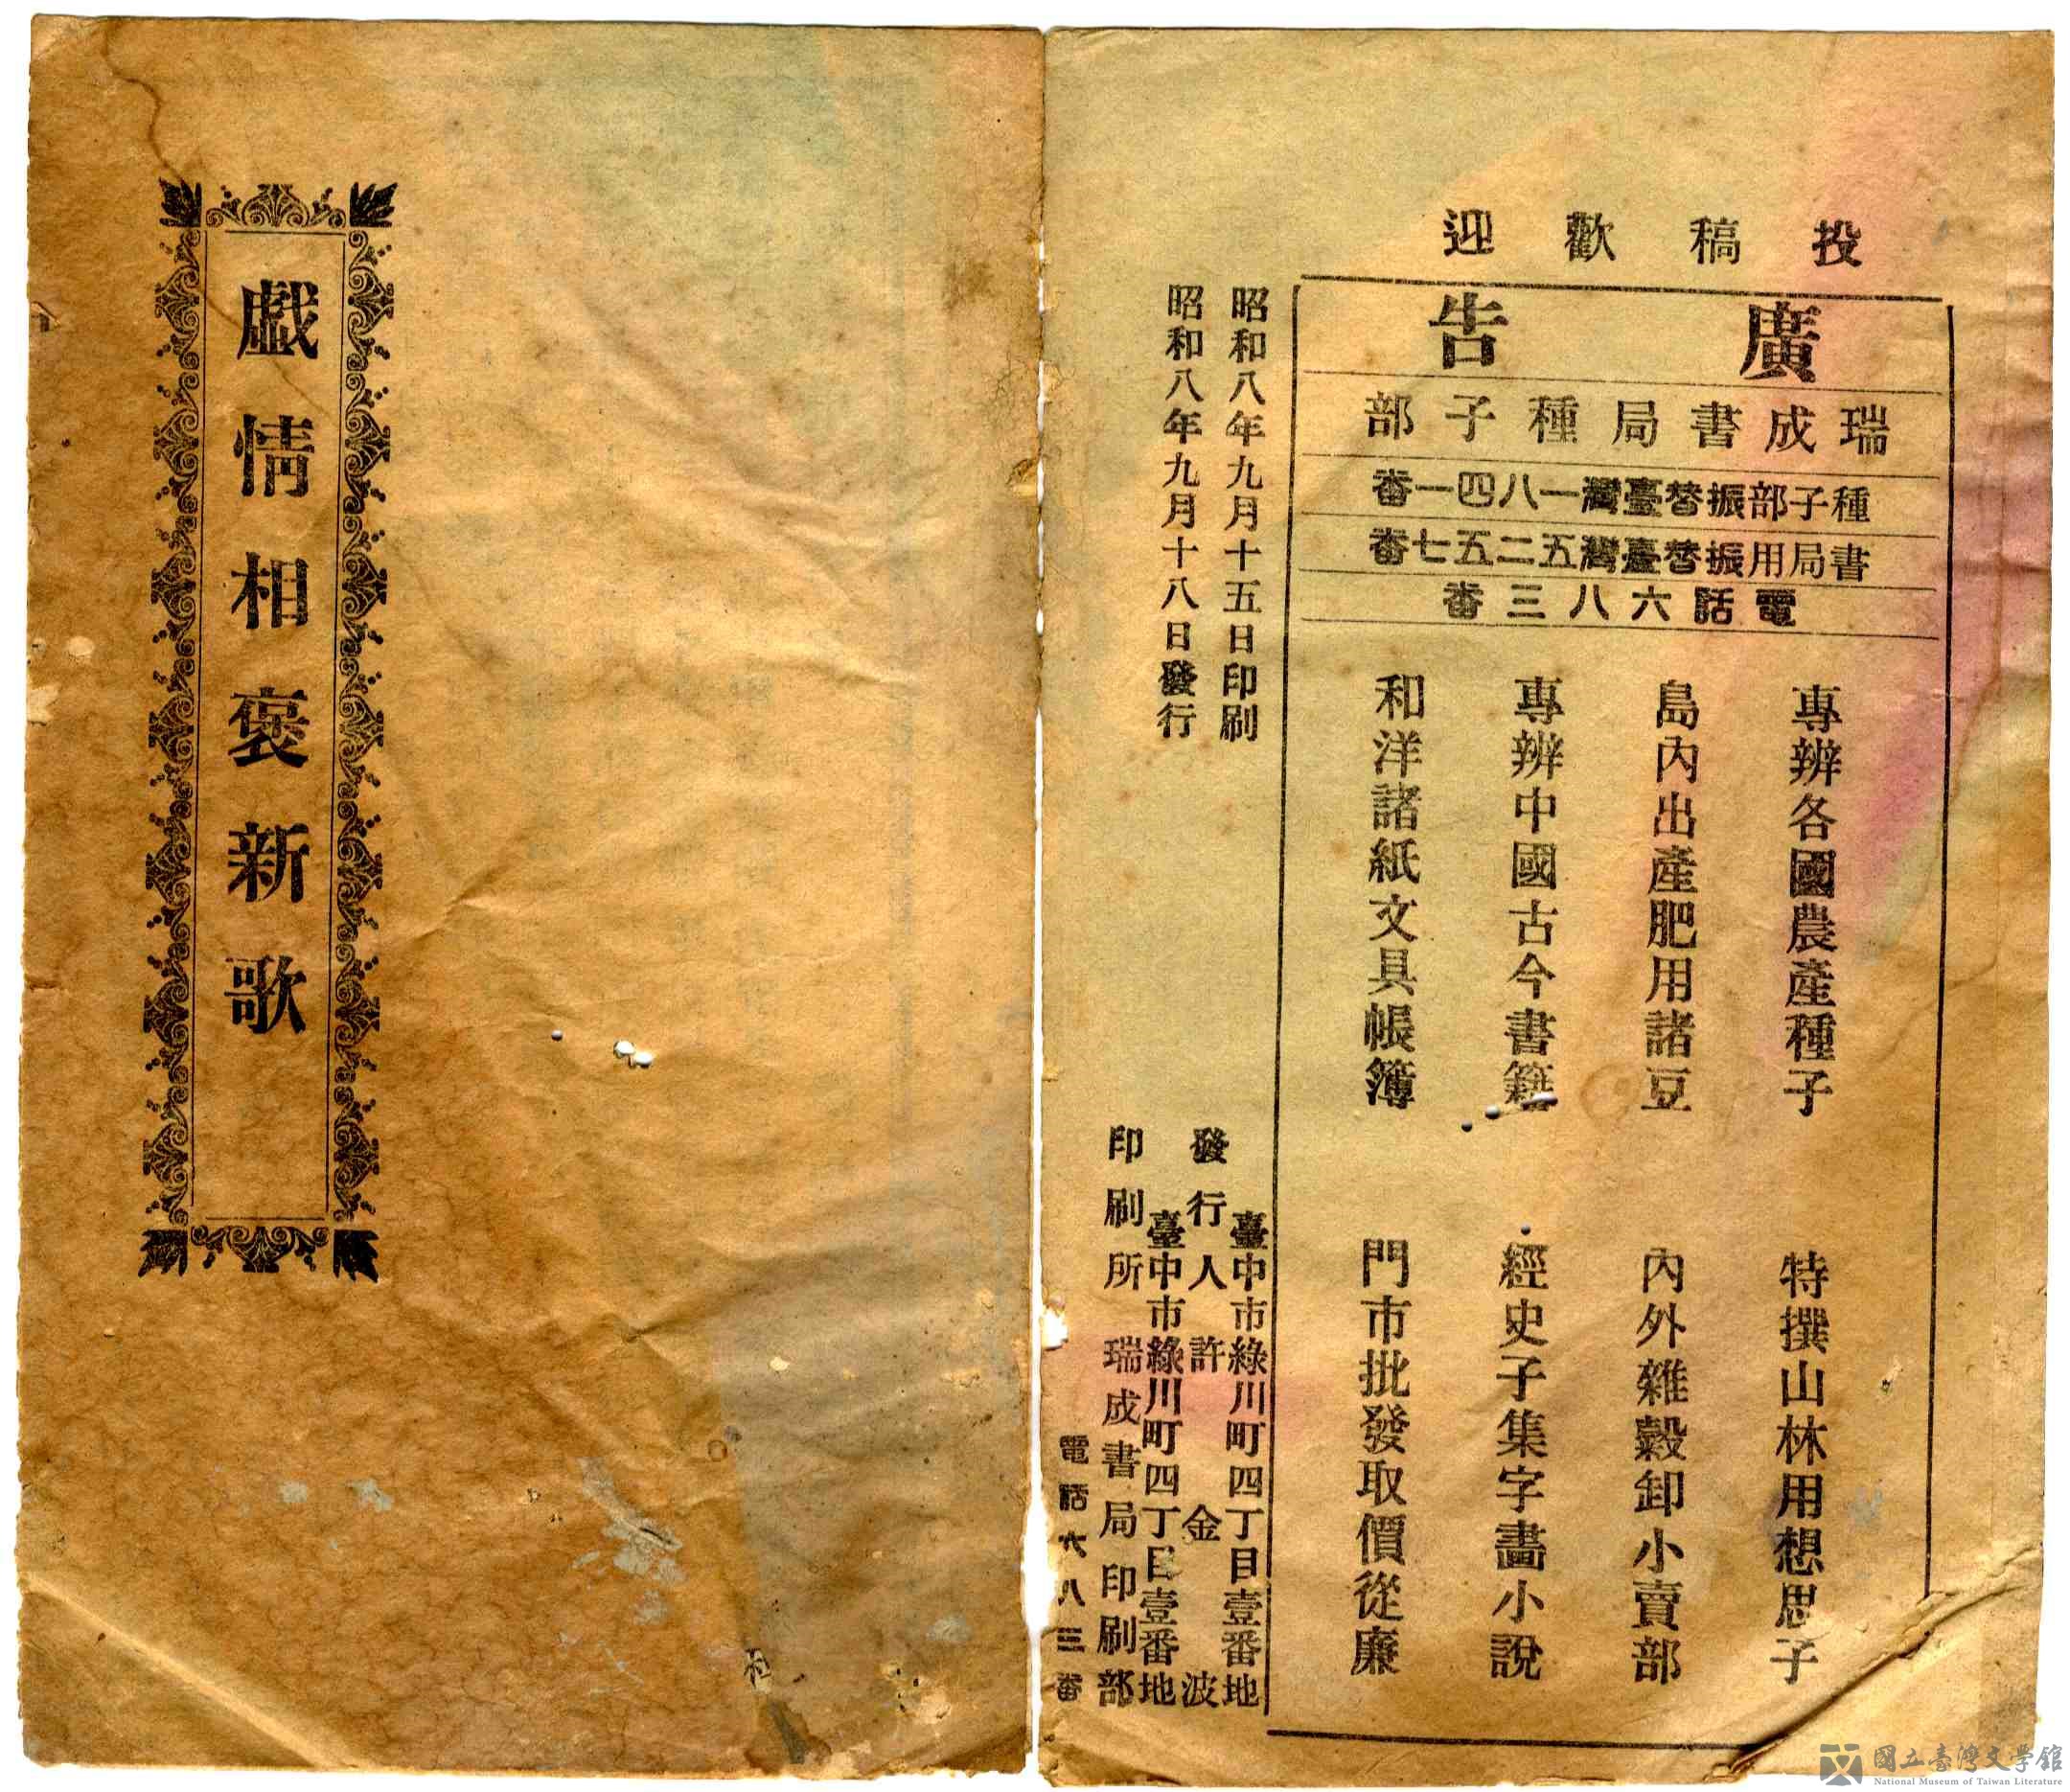 投稿歡迎
廣告
瑞成書局種子部
種子部振替臺灣一八四一番
書局用振替臺灣五二五七番
電話六八三番
專辨各國農產種子　特撰山林用想思子
島內出產肥用諸豆　內外雜穀卸小賣部
專辨中國古今書籍　經史子集字畵小說
和洋諸紙文具帳簿　門市批發取價從廉
昭和八年九月十五日印刷
昭和八年九月十八日發行
臺中市綠川町四丁目壹番地
發行人　許金波
臺中市綠川町四丁目壹番地
印刷所　瑞成書局印刷部
電話六八三番
戯情相褒新歌
國立臺灣文學館
National Museum of Taiwan Literature